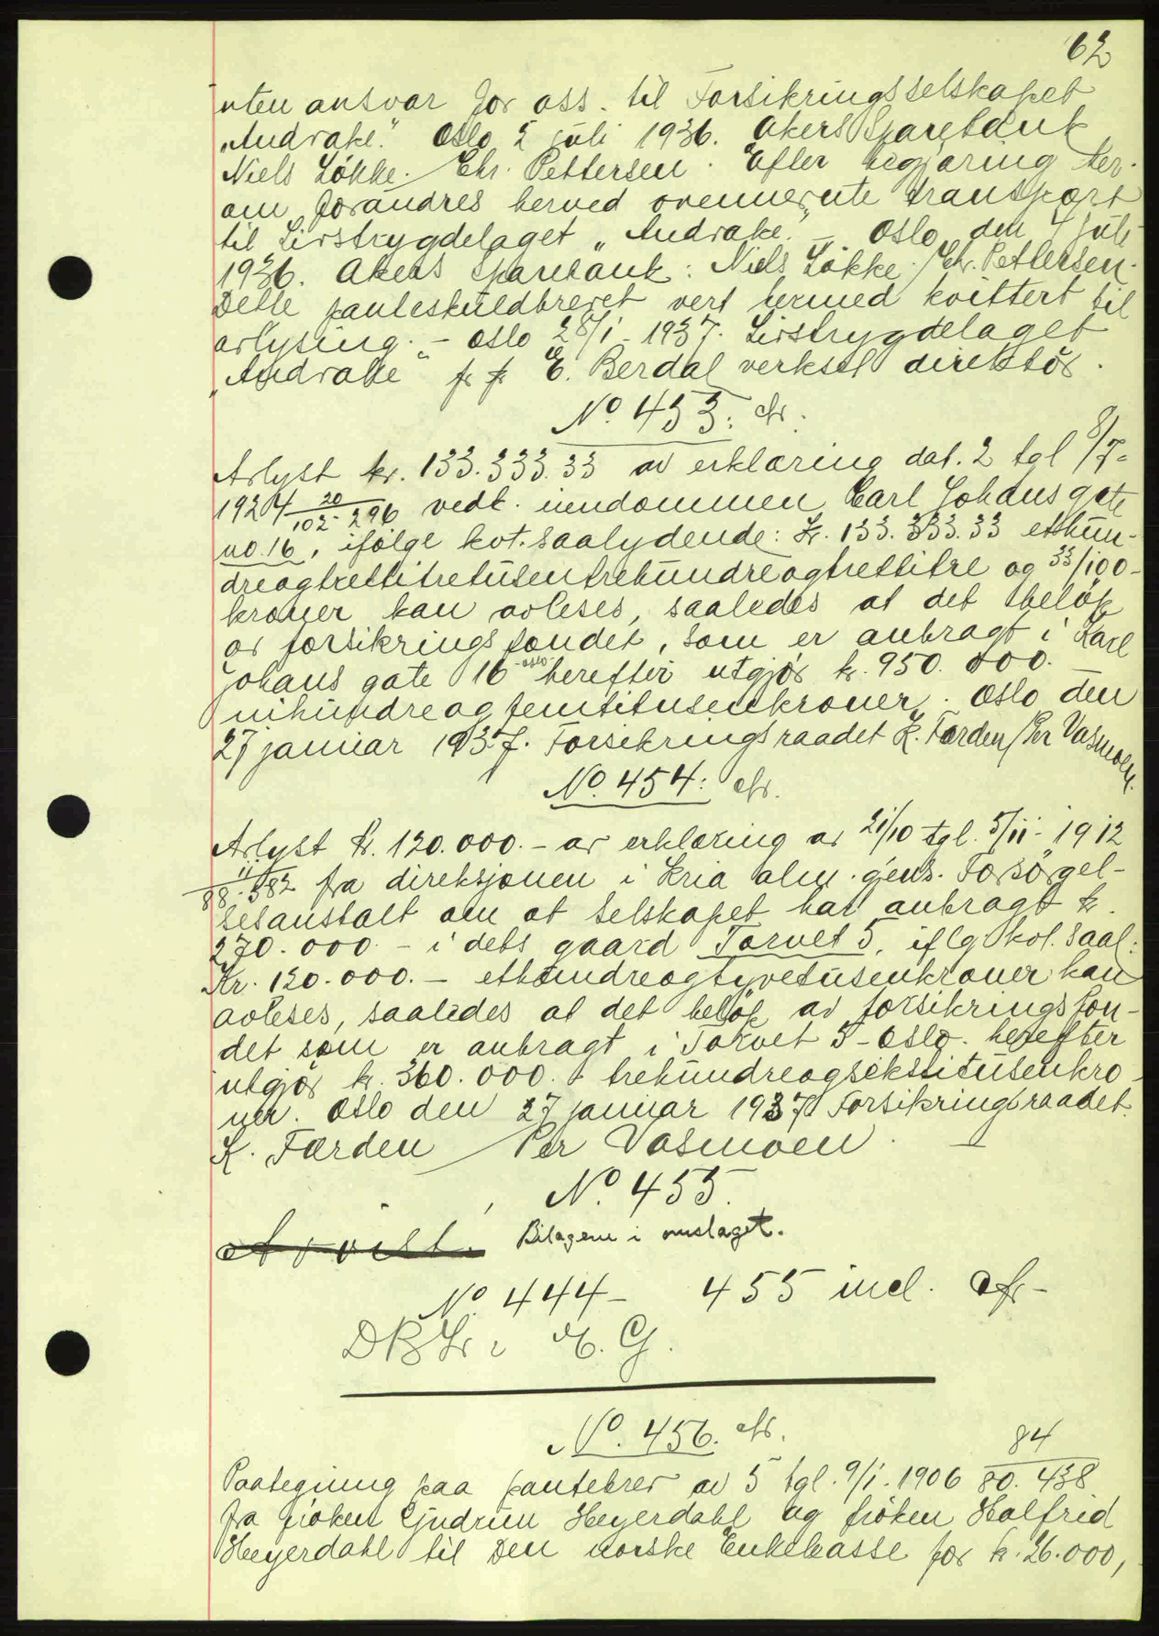 62
uten ansvar for oss. til Forsikringsselskapet
"Andvake." Oslo 2 juli 1936. Akers Sparebank
Niels Løkke. Chr. Pettersen. Efter begjæring her-
om forandres herved ovennevnte transport
til Livstrygdelaget "Andvake." - Oslo den 7 juli
1936. Akers Sparebank: Niels Løkke / Chr. Pettersen.
Dette panteskuldbrevet vert hermed kvittert til
avlysing. - Oslo 28/1 - 1937. Livstrygdelaget
"Andvake" E. Berdal verksel direktör.
No 453.
Avlyst kr. 133.333.33 av erklæring dat. 2 tgl 8/7-
1924 20/102-296 vedk. eiendommen Carl Johans gate
no. 16, ifølge kvt. saalydende: Kr. 133.333.33 etthun-
dreogtrettitretusentrehundreogtrettitre og 33/100-
kroner kan avleses, saaledes at det beløp
av forsikringsfondet, som er anbragt i Karl
Johans gate 16 -oslo- herefter utgjør kr. 950.000. -
nihundreogfemtitusenkroner. Oslo den
27 januar 1937. Forsikringsraadet K. Færden / Per Vasmoen.
No. 454:
Avlyst kr. 120.000.- av erklæring av 21/10 tgl. 5/11- 1912
11/88-582 fra direksjonen i Kria alm. gjens. Forsørgel-
sesanstalt om at selskapet har anbragt kr.
270.000 - i dets gaard Torvet 5, iflg kvt. saal:
Kr. 120.000.- etthundreogtyvetusenkroner kan
avleses, saaledes at det beløp av forsikringsfon-
det som er anbragt i Torvet 5 - Oslo - herefter
utgjør kr. 360.000. - trehundreogsekstitusenkro-
ner. Oslo den 27 januar 1937 Forsikringsraadet.
K. Færden / Per Vasmoen. -
No. 455.
Avvist. Bilagene i omslaget.
No 444 - 455 incl.
No. 456.
Paategning paa pantebrev av 5 tgl. 9/1. 1906 84/80.438
fra frøken Gudrun Heyerdahl og frøken Halfrid
Heyerdahl til Den norske Enkekasse for kr. 26.000,